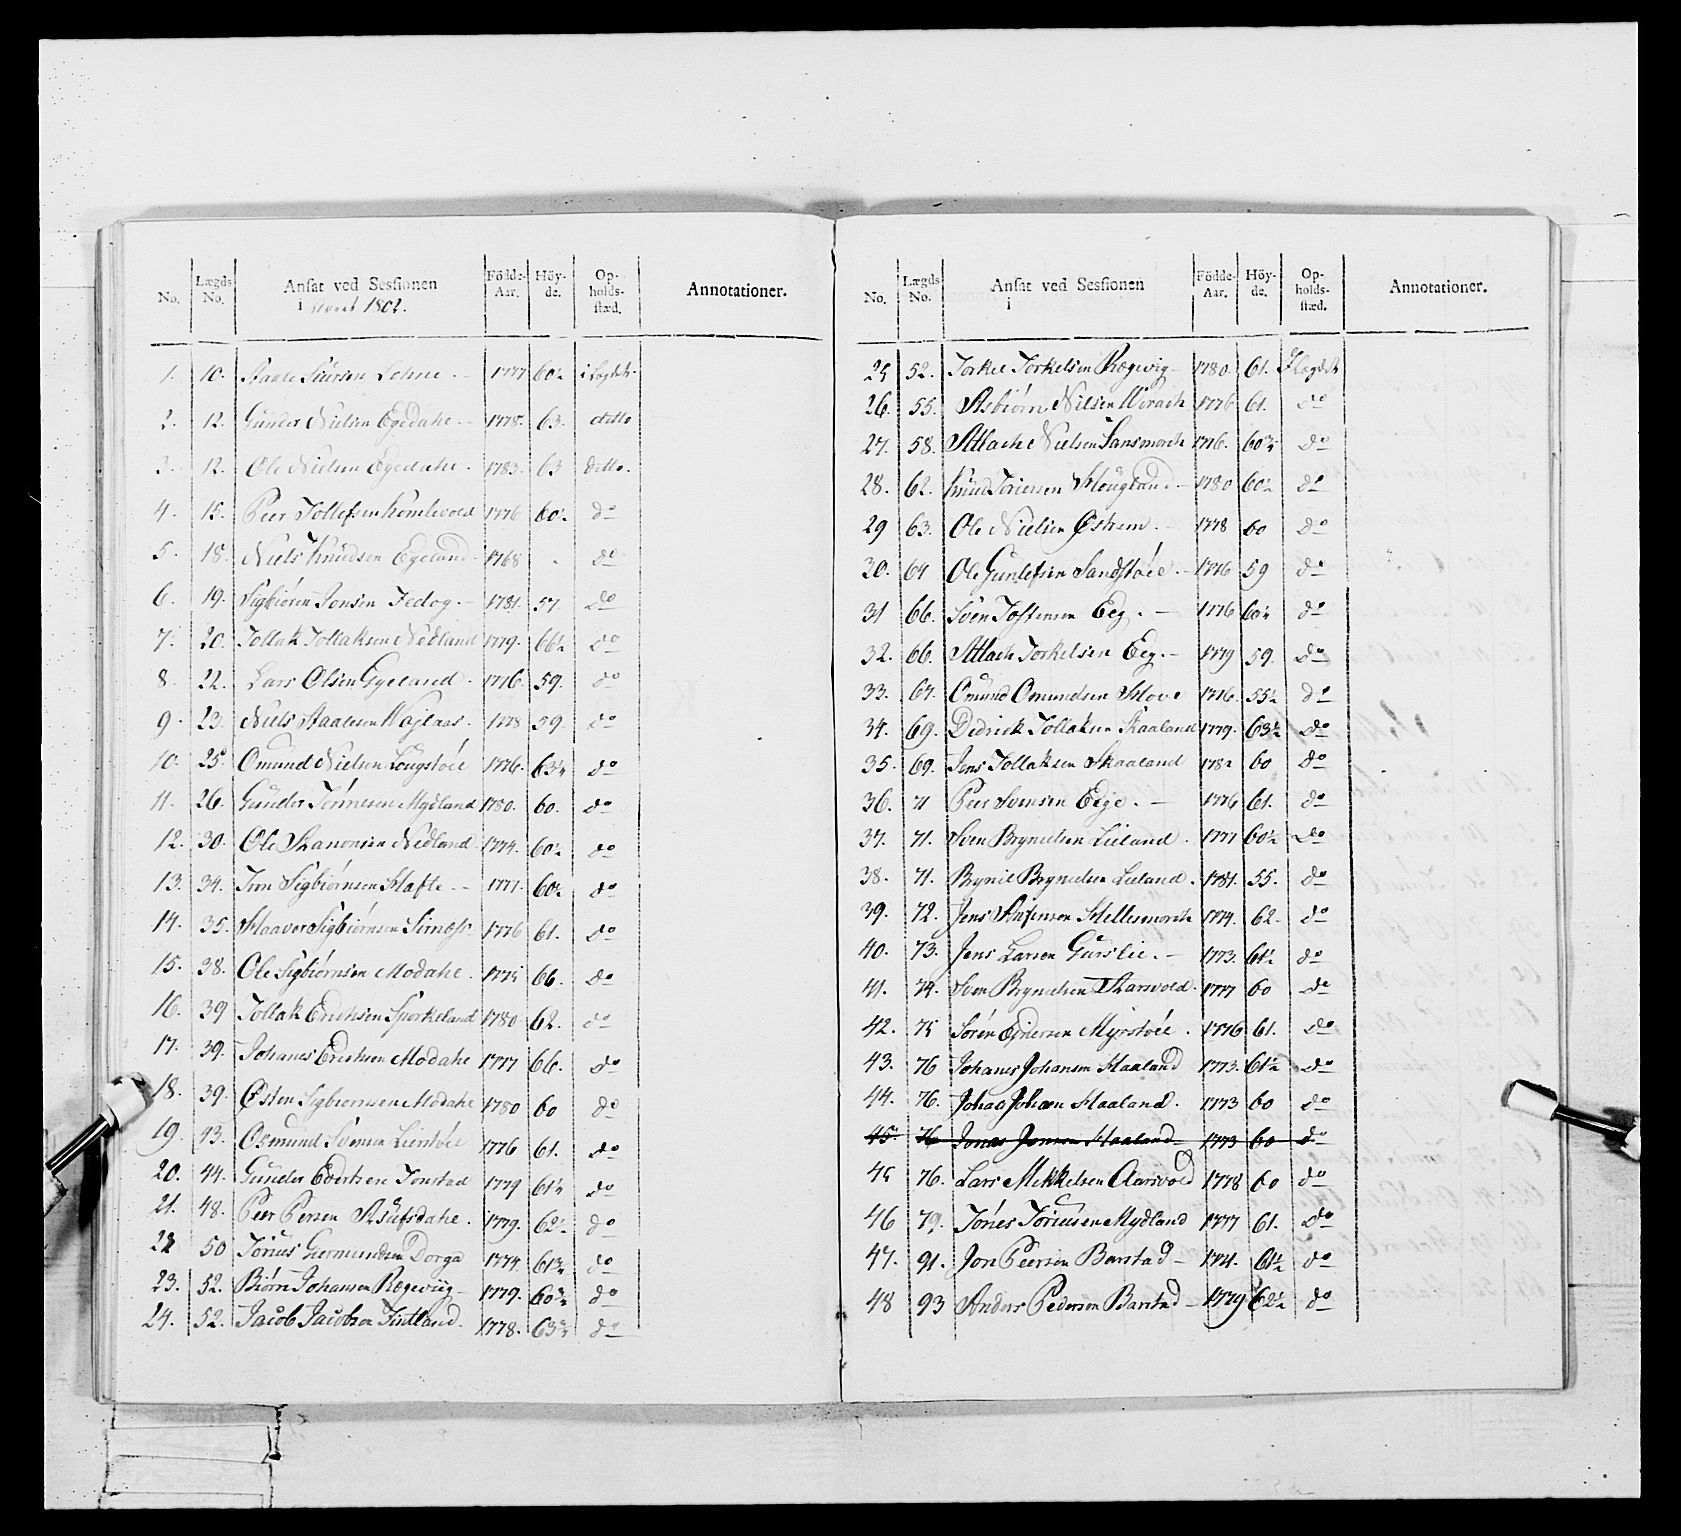 No. Lægds No. Ansat ved Sessionen i Aaret 1802. Födde-Aar. Höy-de. Op-holds-stæd. Annotationer.
1. 10. Staale Siursen Lohne. 1777 60½ i Lægdet.
2. 12. Gunder Nielsen Egedahe. 1778. 63. ditto
3. 12. Ole Nielsen Egedahe. 1783. 63 ditto.
4. 15. Peer Tollefsen Komlevold 1776 60½ do
5. 18. Niels Knudsen Egeland. 1768 - do
6. 19. Sigbiören Jonsen Fedog. 1781. 57. do
7. 20. Tollak Tollaksen Nedland 1779. 66½ do
8. 22. Lars Olsen Gyeland. 1776. 59. do
9. 23. Niels Staalesen 1778 59. do
10. 25. Omund Nielsen Lougstöel 1776. 63¼ do
11. 26. Gunder Tönnesen Mydland 1780. 60. do
12. 30. Ole Nedland 1774. 60½ do
13. 34. Sigbiørnsen Hafte 1777. 60½ do
14. 35. Sigbiørnsen Sirnæs 1776 61. do
15. 38. Ole Sigbiørnsen Modahe. 1775 66. do
16. 39 Tollak Erichsen Sporkeland 1780 62. do
17. 39. Johanes Erichsen Modahe 1777 66. do
18. 39. Østen Sigbiørnsen Modahe 1780 60 do
19. 43. Osmund Svensen Lientöel 1776 61. do
20. 44. Gunder Evertsen Jonstad 1779 61½ do
21. 48. Peer Persen 1779. 62½ do
22 50 Tönus Germundsen Dorga 1774 61¾ do
23. 52. Biørn Johansen Rægeviig 1779. 60¾ do
24. 52. Jacob Jacobsen Tistland. 1778. 63¾ do
No. Lægds No. Ansat ved Sessionen i Födde-Aar. Höy-de. Op-holds-stæd. Annotationer.
25 52. Torkel Torkelsen Rægevig 1780. 61. I Lægdet
26. 55. Asbiørn Nielsen 1776 61. do
27. 58. Attlach Nielsen Sansmorch 1776. 60¾ do
28. 62. Knud Tøriersen Hougland 1780 60½ do
29 63. Ole Nielsen Østrem. 1778 60 do
30. 64 Ole Gunlefsen Sandstöel. 1776 59 do
31 66. Sven Tostensen Eeg. 1776 60½ do
32. 66. Attlach Torkelsen Eeg. 1779 59. do
33. 67. Omund Omundsen Hove 1776. 55½ do
34. 69. Didrick Tollaksen Skaaland 1779. 63½ do
35. 69. Jens Tollaksen Skaaland 1782 60 do
36. 71 Peer Svensen Eeg. 1776 61. do
37. 71. Sven Brynielsen Lieland. 1777 60½ do
38. 71. Bryniel Brynielsen Lieland. 1781. 55. do
39. 72. Jens Hellesmorch 1774. 62. do
40. 73. Jens Larsen Gurslie. 1773. 61½ do
41. 74. Sven Brynielsen 1777 60 do
42. 75 Sören Ejnersen Myrstöel. 1776 61. do
43. 76 Johanes Johansen Haaland 1773. 61½ do
44. 76. Haaland. 1773 60 do
45. 76 Jonas Jonsen Haaland 1773 60 do
45 76. Lars Mikkelsen Aarsvold 1778 60 do
46 79. Tönes Mydland 1777 61. do
47. 91. Jon Peersen Barstad 1774. 61½ do
48 93 Anders Pedersen Barstad 1779 62½ do